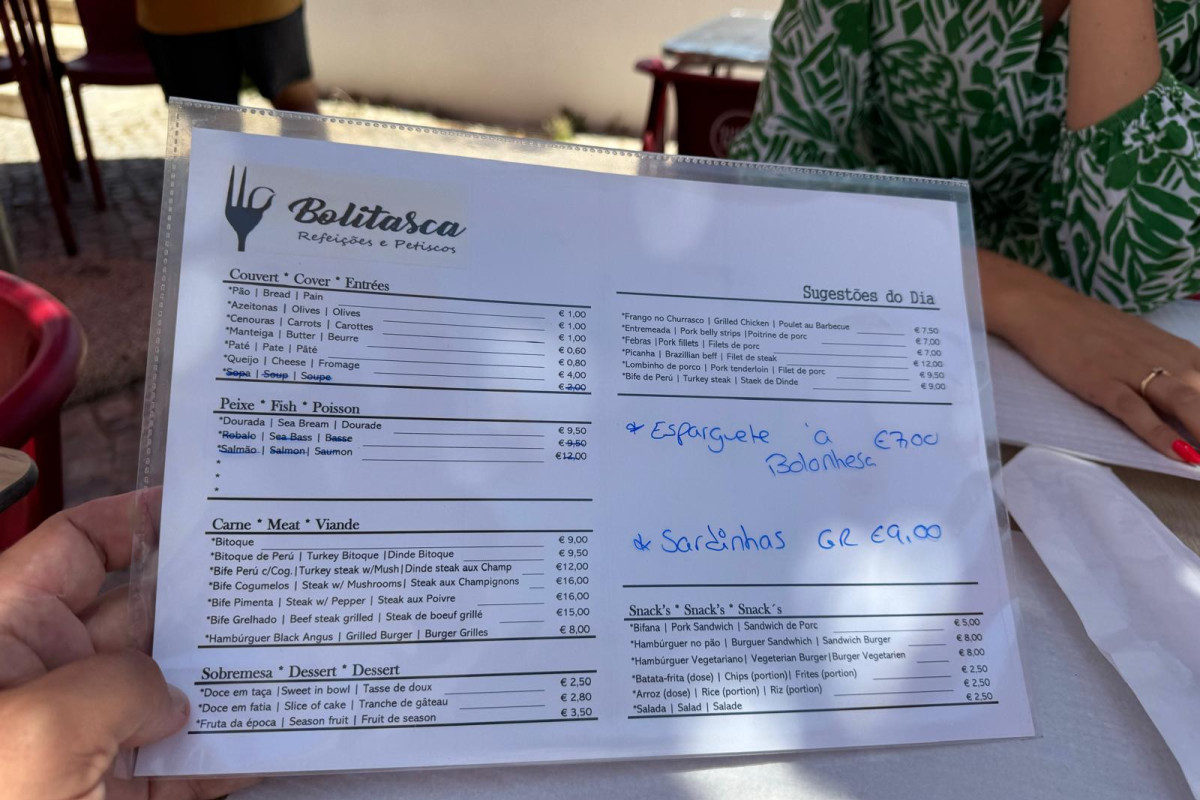 Bolitasca
Refeições e Petiscos
Couvert * Cover * Entrées
*Pão | Bread | Pain € 1,00
*Azeitonas | Olives | Olives € 1,00
*Cenouras | Carrots | Carottes € 1,00
*Manteiga | Butter | Beurre € 0,60
*Paté | Pate | Pâté € 0,80
*Queijo | Cheese | Fromage € 4,00
*Sopa | Soup | Soupe € 2,00
Peixe * Fish * Poisson
*Dourada | Sea Bream | Dourade € 9,50
*Robalo | Sea Bass | Basse € 9,50
*Salmão | Salmon | Saumon €12,00
*
*
*
Carne * Meat * Viande
*Bitoque € 9,00
*Bitoque de Perú | Turkey Bitoque |Dinde Bitoque € 9,50
*Bife Perú c/Cog.|Turkey steak w/Mush|Dinde steak aux Champ €12,00
*Bife Cogumelos | Steak w/ Mushrooms| Steak aux Champignons €16,00
*Bife Pimenta | Steak w/ Pepper | Steak aux Poivre €16,00
*Bife Grelhado | Beef steak grilled | Steak de boeuf grillé €15,00
*Hambúrguer Black Angus | Grilled Burger | Burger Grilles € 8,00
Sobremesa * Dessert * Dessert
*Doce em taça |Sweet in bowl | Tasse de doux € 2,50
*Doce em fatia | Slice of cake | Tranche de gâteau € 2,80
*Fruta da época | Season fruit | Fruit de season € 3,50
Sugestões do Dia
*Frango no Churrasco | Grilled Chicken | Poulet au Barbecue € 7,50
*Entremeada | Pork belly strips |Poitrine de porc € 7,00
*Febras |Pork fillets | Filets de porc € 7,00
*Picanha | Brazillian beff | Filet de steak € 12,00
*Lombinho de porco | Pork tenderloin | Filet de porc € 9,50
*Bife de Perú | Turkey steak | Staek de Dinde € 9,00
* Esparguete à €7,00
Bolonhesa
* Sardinhas GR €9,00
Snack's * Snack's * Snack´s
*Bifana | Pork Sandwich | Sandwich de Porc € 5,00
*Hambúrguer no pão | Burguer Sandwhich | Sandwich Burger € 8,00
*Hambúrguer Vegetariano| Vegeterian Burger|Burger Vegetarien € 8,00
*Batata-frita (dose) | Chips (portion)| Frites (portion) € 2,50
*Arroz (dose) | Rice (portion) | Riz (portion) € 2,50
*Salada | Salad | Salade € 2,50